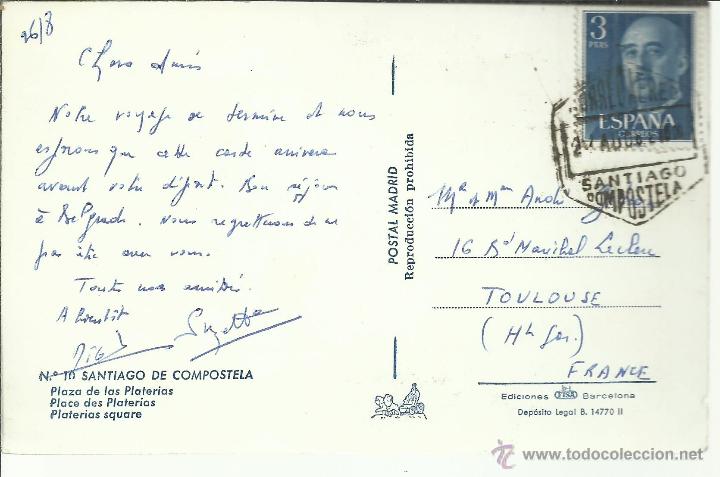 26/8
Chers amis
Notre voyage se termine et nous
espérons que cette carte arrivera
avant votre départ. Bon séjour
à Belgrade. Nous regrettons de ne
pas être avec vous.
Toutes nos amitiés.
A bientôt
Suzette
N.º 10 SANTIAGO DE COMPOSTELA
Plaza de las Platerias
Place des Platerias
Platerias square
POSTAL MADRID
Reproducción prohibida
3
PTAS
ESPAÑA
CORREOS
SANTIAGO
COMPOSTELA
Mr et Mme André
16 Bd Maréchal Leclerc
TOULOUSE
(Hte Gar.)
FRANCE
Ediciones FISA Barcelona
Depósito Legal B. 14770 II
www.todocoleccion.net